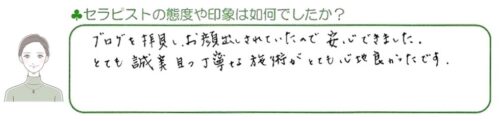 ♣セラピストの態度や印象は如何でしたか？
ブログを拝見し、お顔出しされていたので安心できました。
とても誠実且つ丁寧な施術がとても心地良かったです。